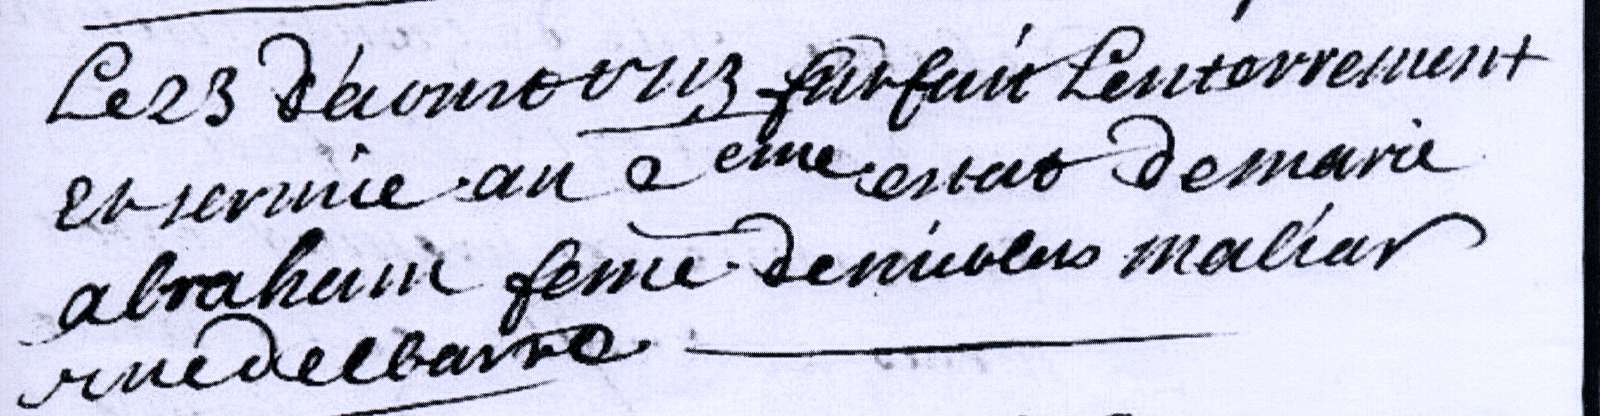 Le 23 d'aoust 1713 fut fait l'enterrement
et service au 2eme estat de marie
abraham feme de nicolas maliar
rue delbarre